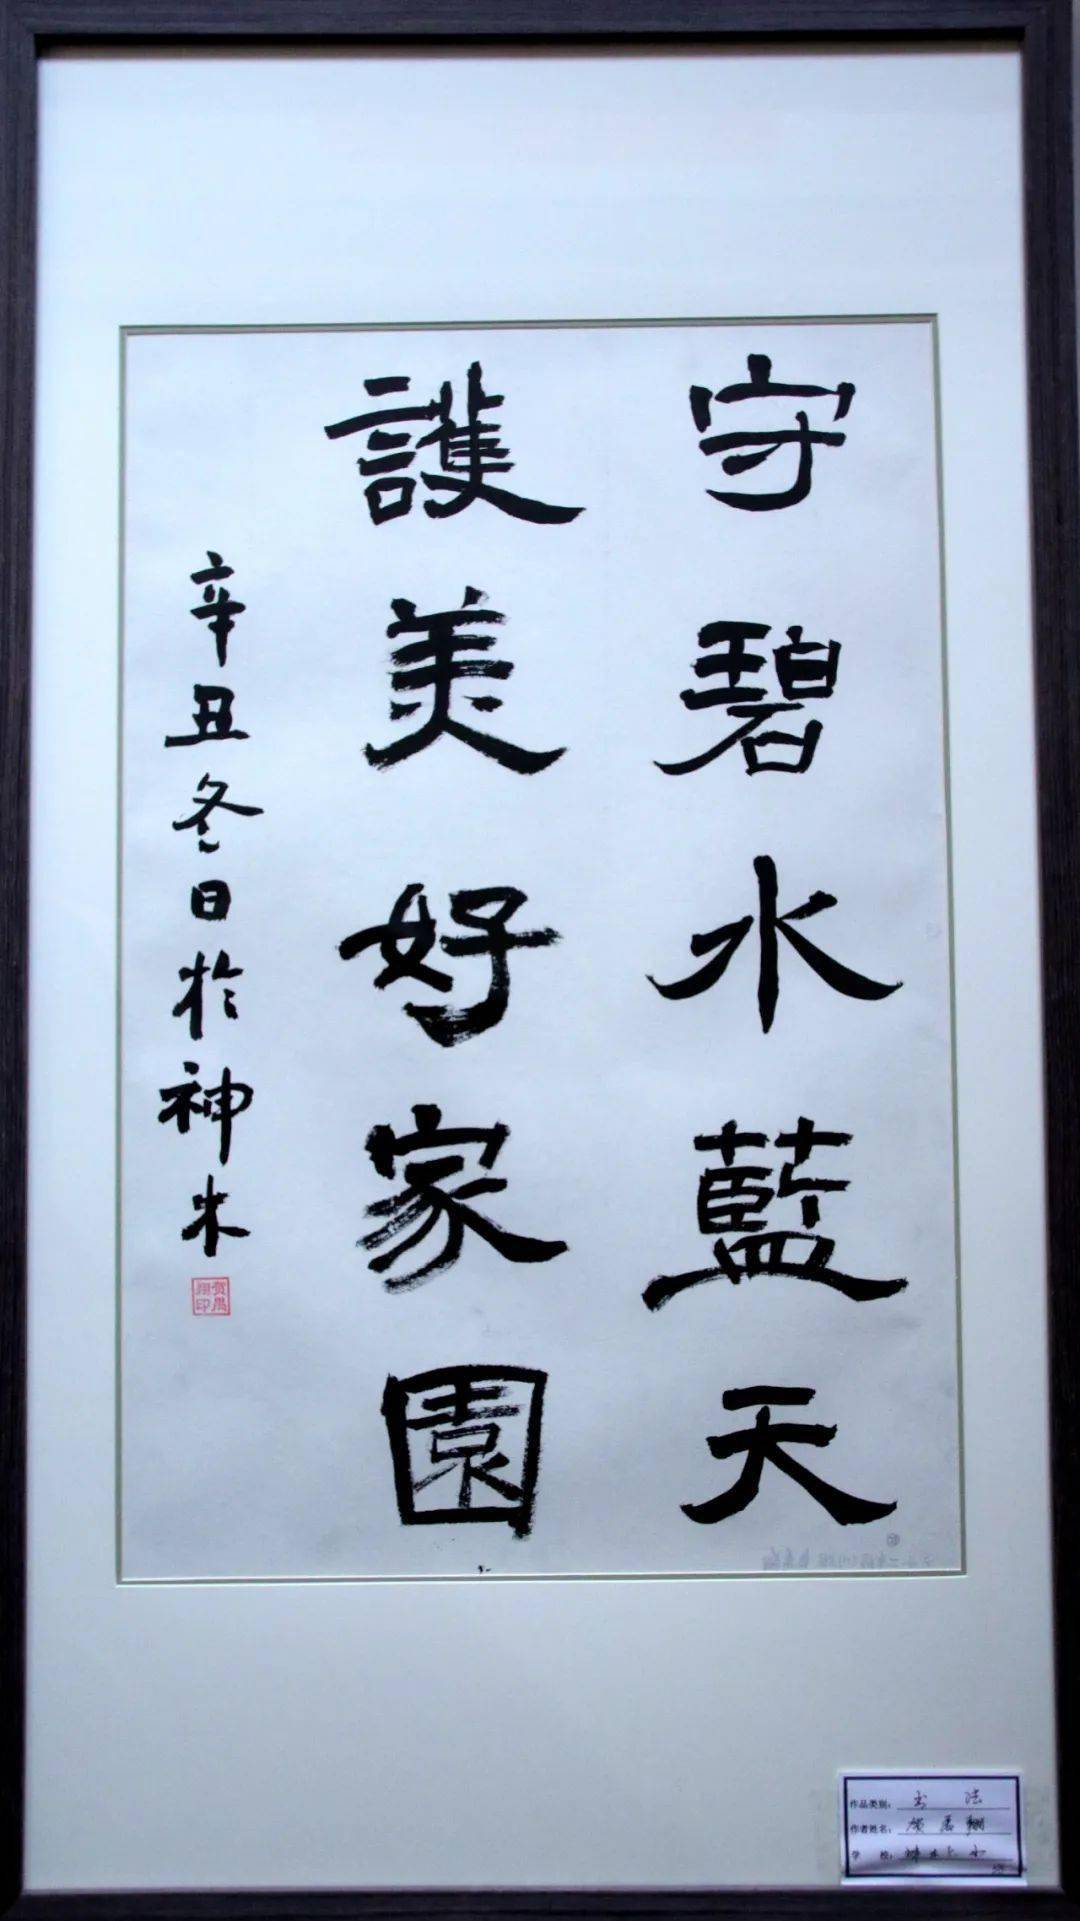 守碧水藍天
護美好家園
辛丑冬日於神木
作品类别：书法
作者姓名：
学 校：